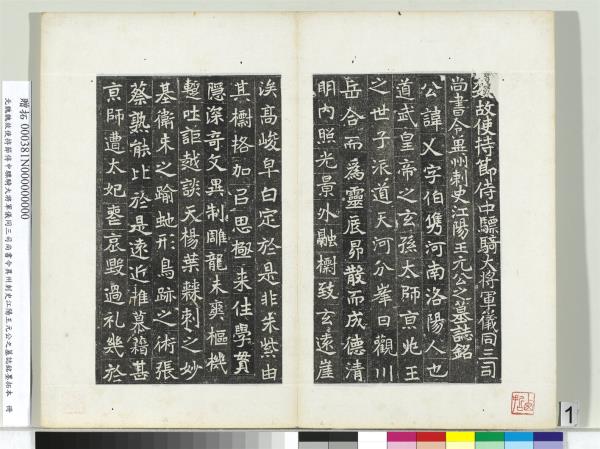 魏故使持節侍中驃騎大將軍儀同三司
尚書令冀州刺史江陽王元公之墓誌銘
公諱乂字伯儁河南洛陽人也
道武皇帝之玄孫太師京兆王
之世子派道天河分峯日觀川
岳合而為靈辰昴散而成德清
明內照光景外融櫛致玄遠崖
涘高峻皁白定於是非朱紫由
其櫛格加㠯思極來往學貫
隱深奇文異制雕龍未爽樞機
蹔吐詎越談天楊葉棘刺之妙
基衛未之踰虵形鳥跡之術張
蔡孰能比於是遠近雅慕籍甚
京師遭太妃憂哀毀過礼幾於
贈拓 000381N000000000
元魏魏故使持節侍中驃騎大將軍儀同三司尚書令冀州刺史江陽王元公之墓誌銘墨拓本 冊
1